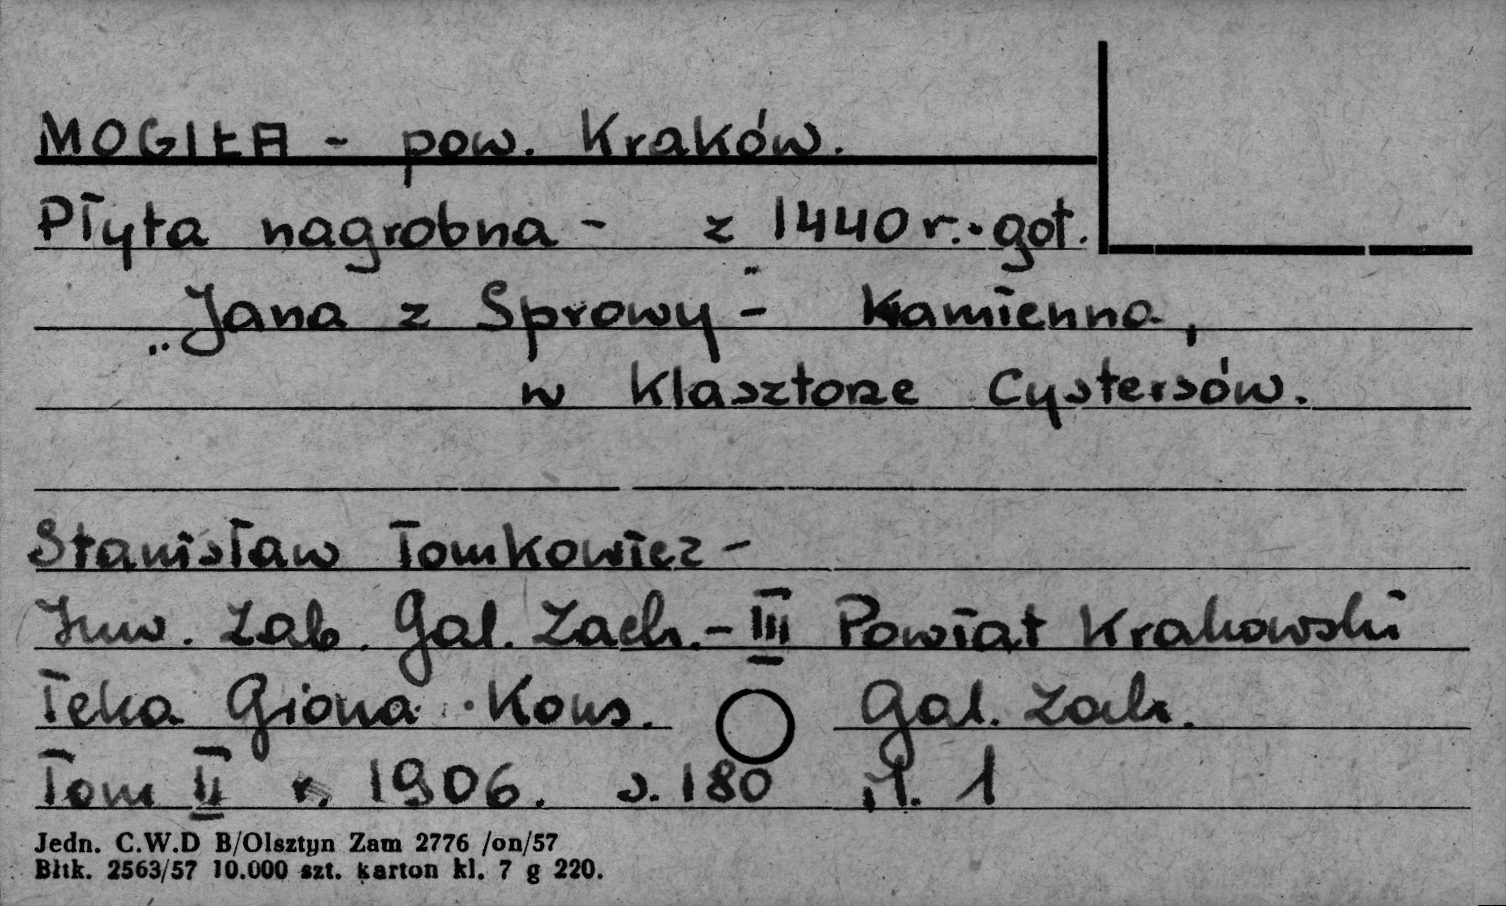 MOGIŁA - pow. Kraków.
Płyta nagrobna - z 1440 r. - got.
„Jana z Sprowy" - Kamienna,
w Klasztorze Cystersów.
Stanisław Tomkowicz -
Inw. Zab. Gal. Zach. - III Powiat Krakowski
Teka Grona Kons. Gal. Zach.
Tom II r. 1906. s. 180 il. 1
Jedn. C.W.D B/Olsztyn Zam 2776 /on/57
Bltk. 2563/57 10.000 szt. karton kl. 7 g 220.